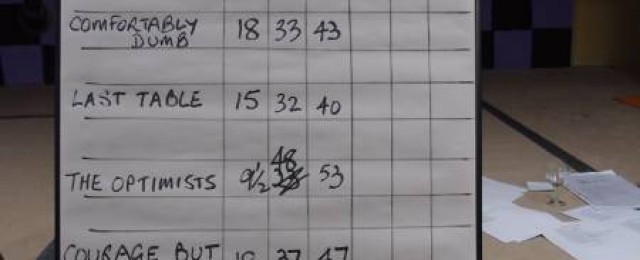 COMFORTABLY 18 33 43
DUMB
LAST TABLE 15 32 40
48
THE OPTIMISTS 9½ 53
COURAGE BUT 37 47